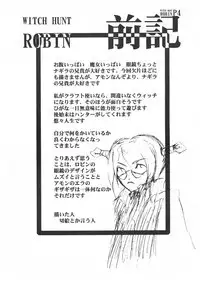 WITCH HUNT
ROBIN
前記
P4
お腹いっぱい 魔女いっぱい 眼鏡ちょっと
ナギラの兄貴が大好きです。今回欠片ほどに
も描きませんが、アモンなんぞより、ナギラ
の兄貴が大好きです。
私がクラフト使いなら、間違いなくウィッチ
になります。そのほうが面白そうですし
ひがな一日無意味に能力使って遊びます
後始末はハンターがしてくれます
悠々人生です
自分で何をかいているか
真くわからなくなっ
てきました
とりあえず思う
ことは、ロビンの
眼鏡のデザインが
ムズイと言うことと
アモンのエラの
ギザギザは何なの
かだけです
描いた人
切絵とか言う人